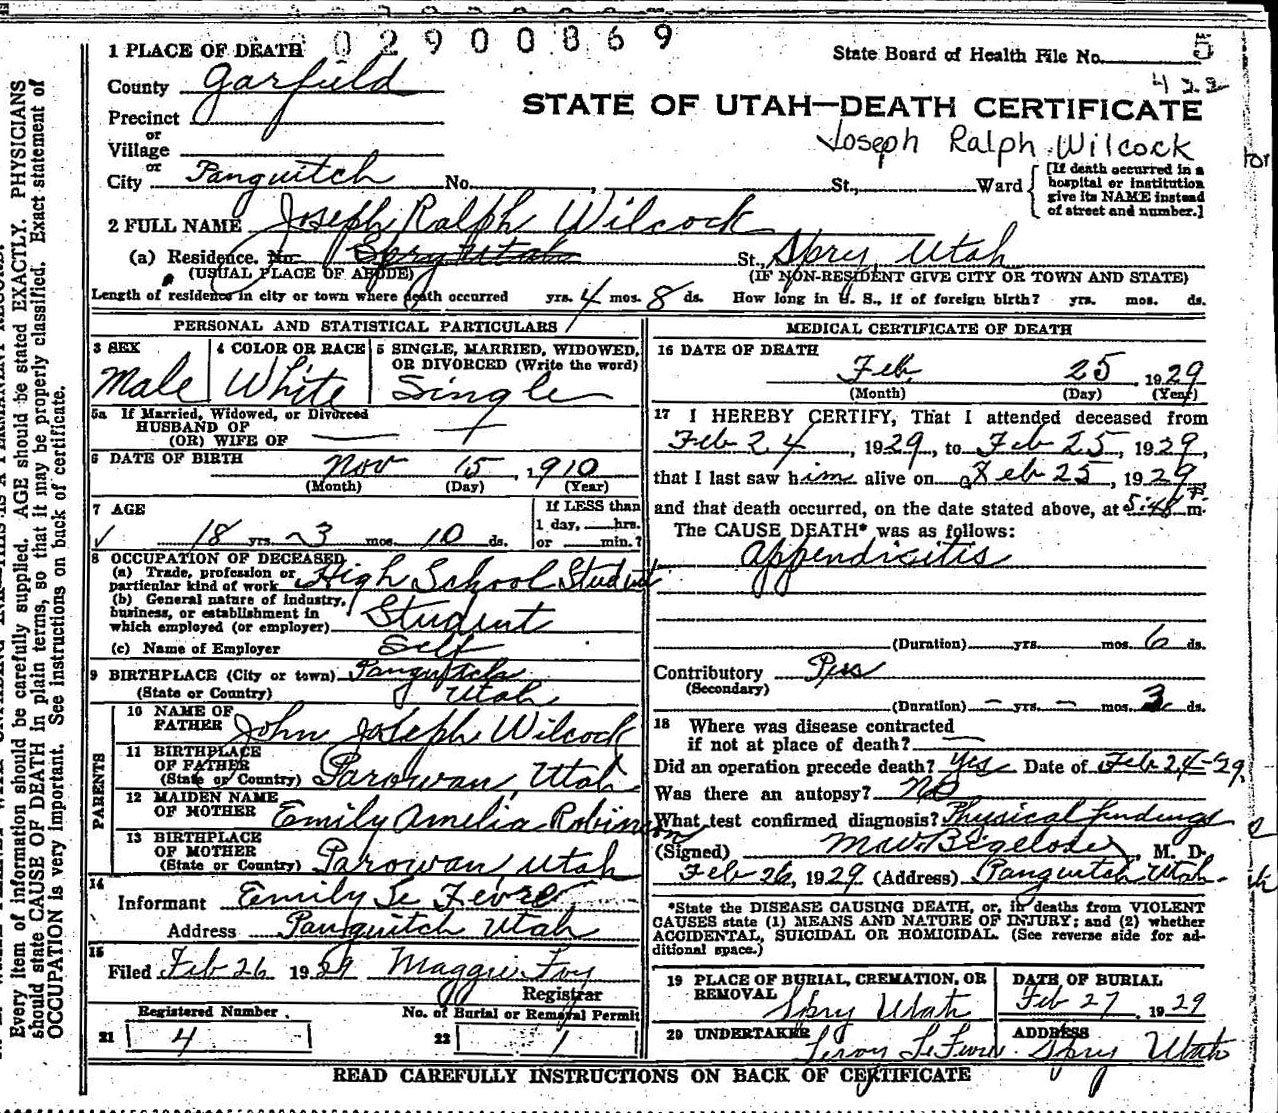 0 2 9 0 0 8 6 9
1 PLACE OF DEATH
State Board of Health File No. 5
County Garfield
422
STATE OF UTAH—DEATH CERTIFICATE
Precinct
or
Village
Joseph Ralph Wilcock
or
City Panguitch No. , St., Ward
[If death occurred in a
hospital or institution
give its NAME instead
of street and number.]
2 FULL NAME Joseph Ralph Wilcock
(a) Residence. No. Spry Utah St., Spry, Utah
(USUAL PLACE OF ABODE) (IF NON-RESIDENT GIVE CITY OR TOWN AND STATE)
Length of residence in city or town where death occurred yrs. 4 mos. 8 ds. How long in U. S., if of foreign birth? yrs. mos. ds.
PERSONAL AND STATISTICAL PARTICULARS
3 SEX
Male
4 COLOR OR RACE
White
5 SINGLE, MARRIED, WIDOWED,
OR DIVORCED (Write the word)
Single
5a If Married, Widowed, or Divorced
HUSBAND OF
(OR) WIFE OF
6 DATE OF BIRTH Nov 15, 1910
(Month) (Day) (Year)
7 AGE
18 yrs. 3 mos. 10 ds.
If LESS than
1 day, hrs.
or min.?
8 OCCUPATION OF DECEASED
(a) Trade, profession or
particular kind of work High School Student
(b) General nature of industry,
business, or establishment in
which employed (or employer) Student
(c) Name of Employer Self
9 BIRTHPLACE (City or town) Panguitch
(State or Country) Utah
PARENTS
10 NAME OF
FATHER John Joseph Wilcock
11 BIRTHPLACE
OF FATHER
(State or Country) Parowan, Utah
12 MAIDEN NAME
OF MOTHER Emily Amelia Robinson
13 BIRTHPLACE
OF MOTHER
(State or Country) Parowan, Utah
14
Informant Emily Le Fevre
Address Panguitch Utah
15
Filed Feb 26 1929 Maggie Foy
Registrar
Registered Number
21 4
No. of Burial or Removal Permit
22 1
MEDICAL CERTIFICATE OF DEATH
16 DATE OF DEATH
Feb 25, 1929
(Month) (Day) (Year)
17 I HEREBY CERTIFY, That I attended deceased from
Feb 24, 1929, to Feb 25, 1929,
that I last saw him alive on Feb 25, 1929,
and that death occurred, on the date stated above, at 5:48 P. m.
The CAUSE DEATH* was as follows:
Appendicitis
(Duration) yrs. mos. 6 ds.
Contributory Pus
(Secondary)
(Duration) – yrs. – mos. 3 ds.
18 Where was disease contracted
if not at place of death? —
Did an operation precede death? Yes Date of Feb 24-29.
Was there an autopsy? No
What test confirmed diagnosis? Physical findings
(Signed) M. W. Bigelow, M. D.
Feb 26, 1929 (Address) Panguitch Utah
*State the DISEASE CAUSING DEATH, or, in deaths from VIOLENT
CAUSES state (1) MEANS AND NATURE OF INJURY; and (2) whether
ACCIDENTAL, SUICIDAL OR HOMICIDAL. (See reverse side for ad-
ditional space.)
19 PLACE OF BURIAL, CREMATION, OR
REMOVAL Spry Utah
DATE OF BURIAL
Feb 27, 1929
20 UNDERTAKER
Leroy LeFevre
ADDRESS
Spry Utah
READ CAREFULLY INSTRUCTIONS ON BACK OF CERTIFICATE
Every item of information should be carefully supplied. AGE should be stated EXACTLY. PHYSICIANS
should state CAUSE OF DEATH in plain terms, so that it may be properly classified. Exact statement of
OCCUPATION is very important. See instructions on back of certificate.